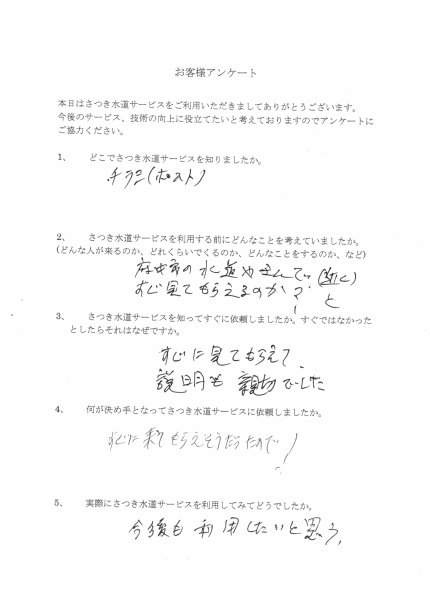 お客様アンケート
本日はさつき水道サービスをご利用いただきましてありがとうございます。
今後のサービス、技術の向上に役立てたいと考えておりますのでアンケートに
ご協力ください。
1、 どこでさつき水道サービスを知りましたか。
チラシ(ポスト)
2、 さつき水道サービスを利用する前にどんなことを考えていましたか。
(どんな人が来るのか、どれくらいでくるのか、どんなことをするのか、など)
府中市の水道や さんで (近く)
すぐ見てもらえるのか? と
3、 さつき水道サービスを知ってすぐに依頼しましたか。すぐではなかった
としたらそれはなぜですか。
すぐに見てもらえて、
説明も親切でした
4、 何が決め手となってさつき水道サービスに依頼しましたか。
すぐに来てもらえそうだったので!
5、 実際にさつき水道サービスを利用してみてどうでしたか。
今後も利用したいと思う。